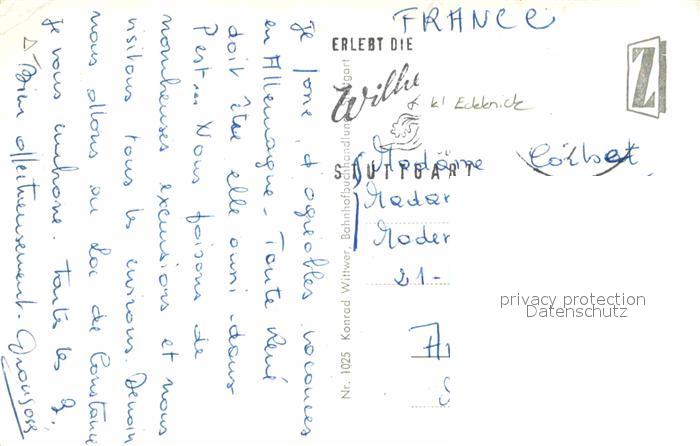 Je passe d'agréables vacances
en Allemagne - Tante René
doit être elle aussi dans
l'est... Nous faisons de
nombreuses excursions et nous
visitons tous les environs. Demain
nous allons au Lac de Constance
Je vous embrasse. toutes les 2.
Bien affectueusement.
FRANCE
ERLEBT DIE
Wilhelma
STUTTGART
Z
Madame
Madame
21-
Nr. 1025 Konrad Wittwer, Bahnhofbuchhandlung, Stuttgart
privacy protection
Datenschutz